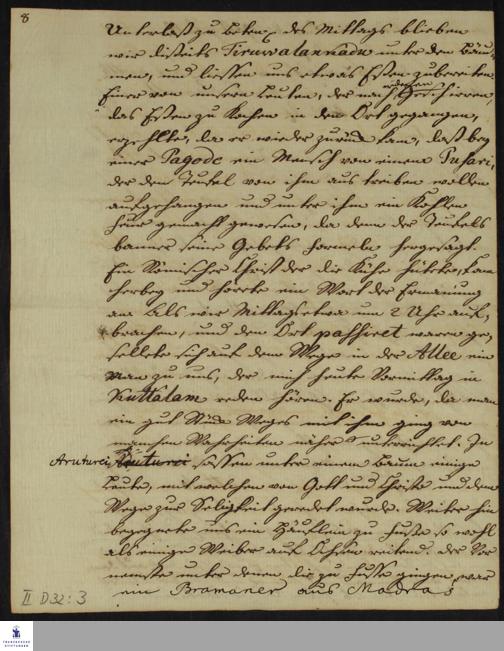 8
Unterlaß zu beten. des Mittags blieben
wir disseits Tiruwalankadu unter den Bäu-
men, und liessen uns etwas Essen zubereiten.
Einer von unsern Leuten, der nach irdenen Geschirren,
das Essen zu kochen in den Ort gegangen,
erzehlte, da er wieder zurück kam, daß bey
einer Pagode ein Mensch von einem Pusari,
der den Teufel von ihm aus treiben wollen
aufgehangen und unter ihm ein Kohlen
feuer gemacht gewesen, da denn der Teufels
banner seine Gebets formeln hergesagt.
Ein Römischer Christ der die Kühe hütete, kam
herbey und hörete ein Wort der Ermanung
an. Als wir Mittags etwa um 2 Uhr auf-
brachen, und den Ort passiret waren ge-
sellete sich auf dem Wege in der Allee ein
Man zu uns, der mich heute Vormittag in
Kuttalam reden hören. Er wurde, da man
ein gut Stück Weges mit ihm ging von
manchen Wahrheiten näher unterrichtet. In
Aruturei sassen unter einem Baum einige
Leute, mit welchen von Gott und Christo und dem
Wege zur Seligkeit geredet wurde. Weiter hin
begegnete uns ein Häuflein zu Fusse so wohl
als einige Weiber auf Ochsen reitend. der Vor-
nemste unter denen die zu Fusse gingen war
ein Bramaner aus Madras
II D 32 : 3
FRANCKESCHE
STIFTUNGEN